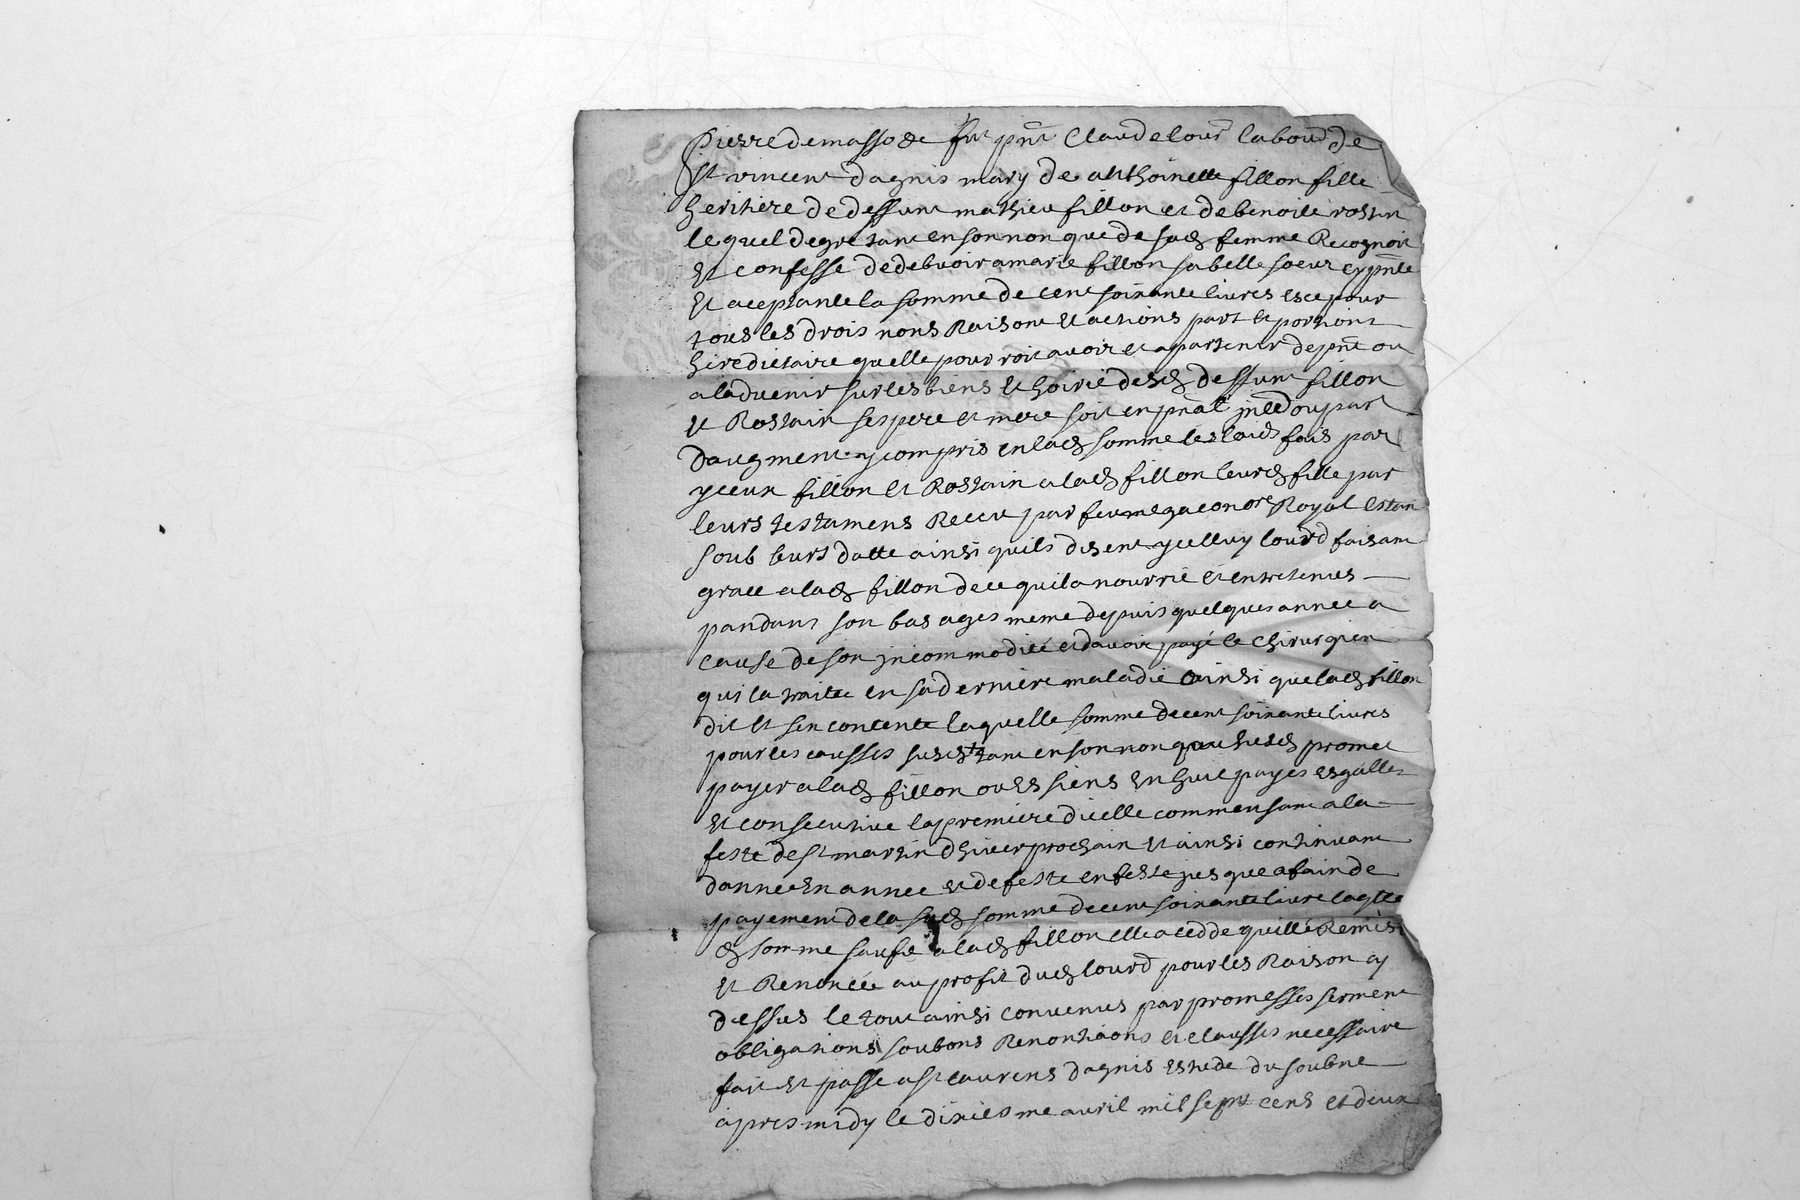 Pierre demasso & fut pnt Claude lourd labour de
St vincent dagnis mary de anthoinette fillon fille
heritiere de deffunt mathieu fillon et de benoite rostin
lequel degre tant en son non que de sad femme Recognoit
Et confesse de debvoir a marie fillon sa belle soeur cy pnte
Et aceptante la somme de cent soixante livres et ce pour
tous les drois nons Raisons Et actions part et portions
hereditaire quelle pourroit avoir et apartenir de pnt ou
a ladvenir sur les biens Et hoirie desd deffunt fillon
Et Rostain ses pere et mere soit en pnal jnled ou part
daugment y compris en lad somme les laids fais par
yceux fillon Et Rostain a lad fillon leurd fille par
leurs testamens Receu par feu me Royal Estan
soub leurs datte ainsi quils disent ycelluy lourd faisant
grace a lad fillon de ce quil a nourrie Et entretenues
pandant son bas ages meme depuis quelques annee a
cause de son jncommodité et davoir payé le chirurgien
qui la traitee en sa derniere maladie ainsi que lad fillon
dit Et sen contente laquelle somme de cent soixante livres
pour les causses susd tant en son non que susd promet
payer a lad fillon ou Es siens En huit payes esgalles
Et consecutive la premiere dicelle commensant a la
feste de St martin dhiver prochain Et ainsi continuant
dannee En annee Et de feste en feste jusque a fain de
payement de la sud somme de cent soixante livre laqlle
d somme saufe a lad fillon elle a cedde quitté Remis
Et Renoncée au profit dud lourd pour les Raison cy
dessus le tout ainsi convenus par promesses serment
obligations soubons Renontiaons et clausses necessaire
fait Et passe a St laurens dagnis Estude du soubne
apres midy le dixiesme avril mil sept cens et deux